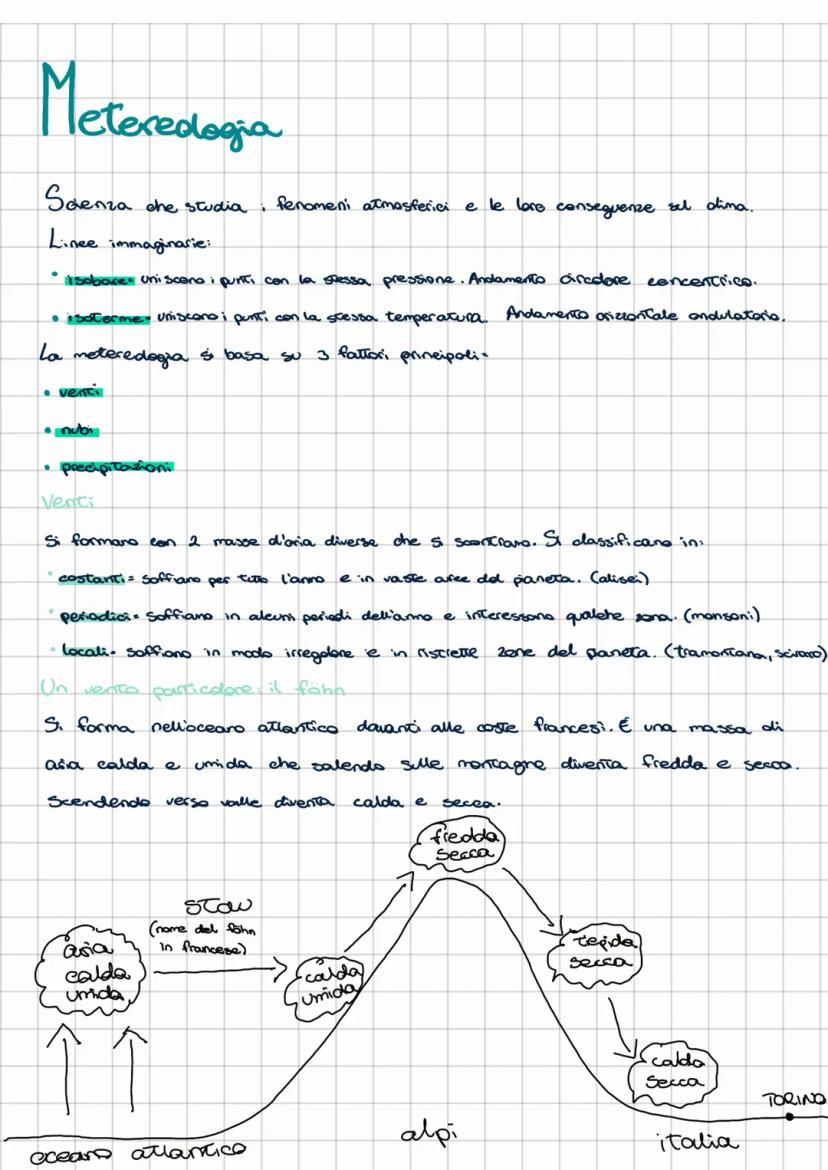 Metereologia
Scienza che studia i fenomeni atmosferici e le loro conseguenze sul clima.
Linee immaginarie:
• isobare= uniscono i punti con la stessa pressione. Andamento circolare concentrico.
• isoterme= uniscono i punti con la stessa temperatura. Andamento orizzontale ondulatorio.
La metereologia si basa su 3 fattori principali=
• venti
• nubi
• precipitazioni
Venti
Si formano con 2 masse d'aria diverse che si scontrano. Si classificano in:
• costanti= soffiano per tutto l'anno e in vaste aree del pianeta. (alisei)
• periodici= soffiano in alcuni periodi dell'anno e interessano qualche zona. (monsoni)
• locali= soffiano in modo irregolare e in ristrette zone del pianeta. (tramontana, scirocco)
Un vento particolare: il föhn
Si forma nell'oceano atlantico davanti alle coste francesi. È una massa di
aria calda e umida che salendo sulle montagne diventa fredda e secca.
Scendendo verso valle diventa calda e secca.
fredda
secca
stau
(nome del föhn
in francese)
aria
calda
umida
calda
umida
tepida
secca
calda
secca
TORINO
oceano atlantico
alpi
italia